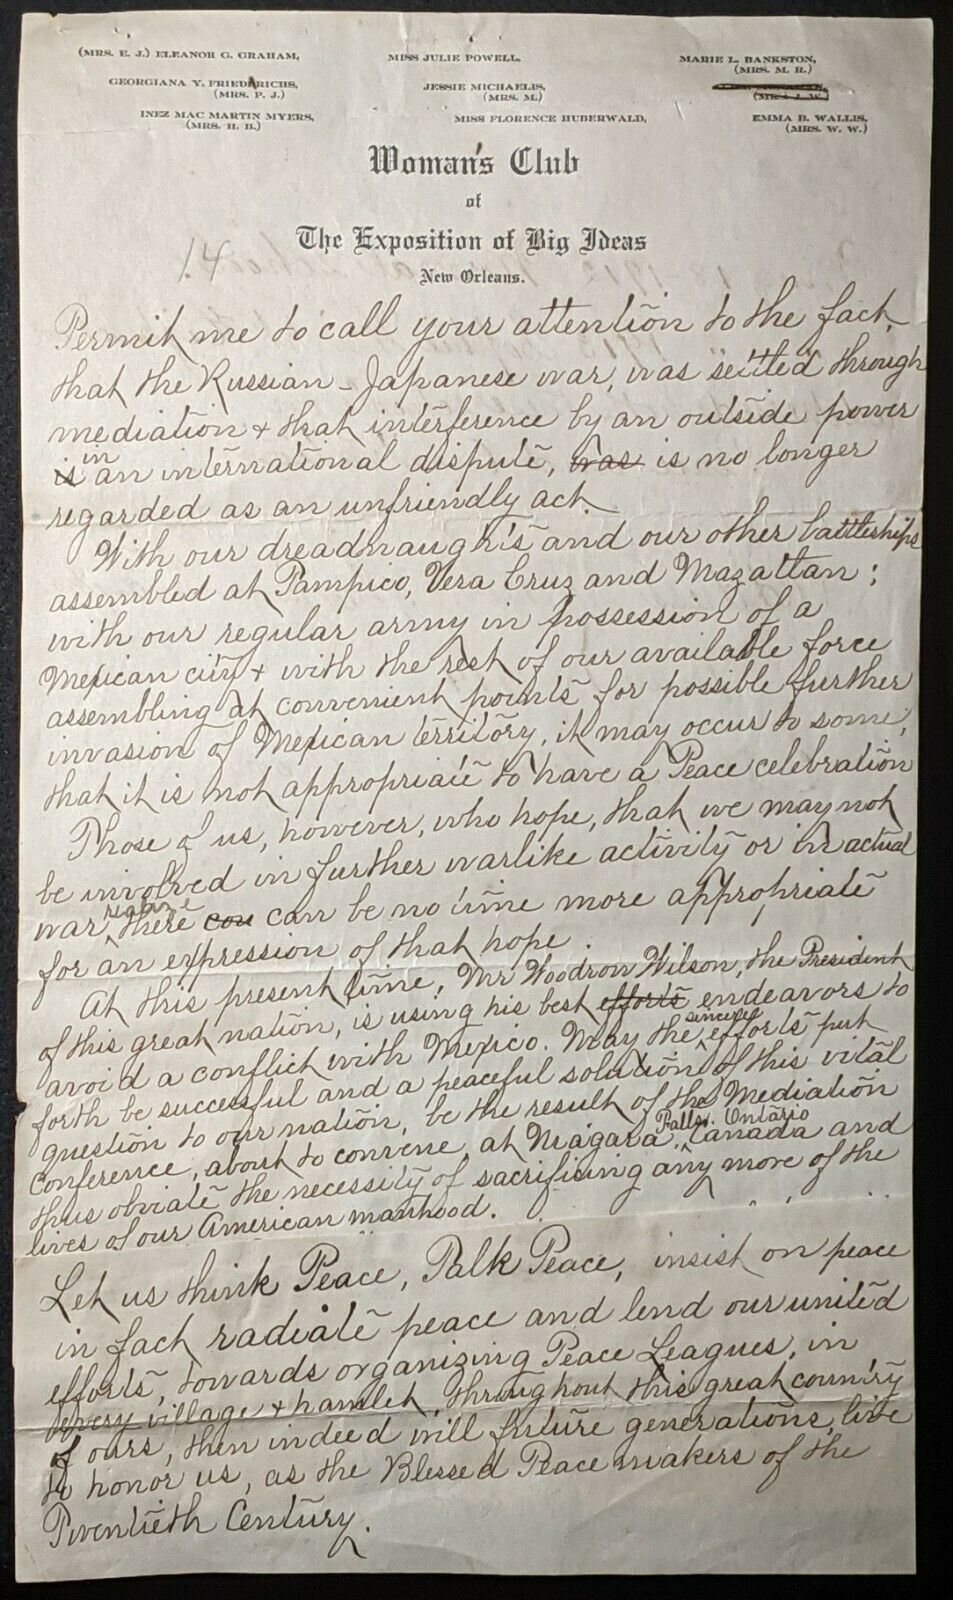 (MRS. E. J.) ELEANOR G. GRAHAM,
GEORGIANA Y. FRIEDRICHS,
(MRS. P. J.)
INEZ MAC MARTIN MYERS,
(MRS. H. B.)
MISS JULIE POWELL,
JESSIE MICHAELIS,
(MRS. M.)
MISS FLORENCE HUBERWALD,
MARIE L. BANKSTON,
(MRS. M. R.)
EMMA B. WALLIS,
(MRS. W. W.)
Woman's Club
of
The Exposition of Big Ideas
New Orleans.
14
Permit me to call your attention to the fact,
that the Russian-Japanese war, was settled through
mediation & that interference by an outside power
is in an international dispute, was is no longer
regarded as an unfriendly act.
With our dreadnaughts and our other battleships
assembled at Tampico, Vera Cruz and Mazattan;
with our regular army in possession of a
Mexican city & with the rest of our available force
assembling at convenient points for possible further
invasion of Mexican territory, it may occur to some,
that it is not appropriate to have a Peace celebration
Those of us, however, who hope, that we may not
be involved in further warlike activity or in actual
war, realize there cou can be no time more appropriate
for an expression of that hope.
At this present time, Mr Woodrow Wilson, the President
of this great nation, is using his best efforts endeavors to
avoid a conflict with Mexico. May the sincere efforts put
forth be successful and a peaceful solution of this vital
question to our nation, be the result of the Mediation
Conference, about to convene, at Niagara Falls, Ontario Canada and
thus obviate the necessity of sacrificing any more of the
lives of our American manhood.
Let us think Peace, Talk Peace, insist on peace
in fact radiate peace and lend our united
efforts, towards organizing Peace Leagues, in
every village & hamlet, throughout this great country
of ours, then indeed will future generations, live
to honor us, as the Blessed Peace makers of the
Twentieth Century.